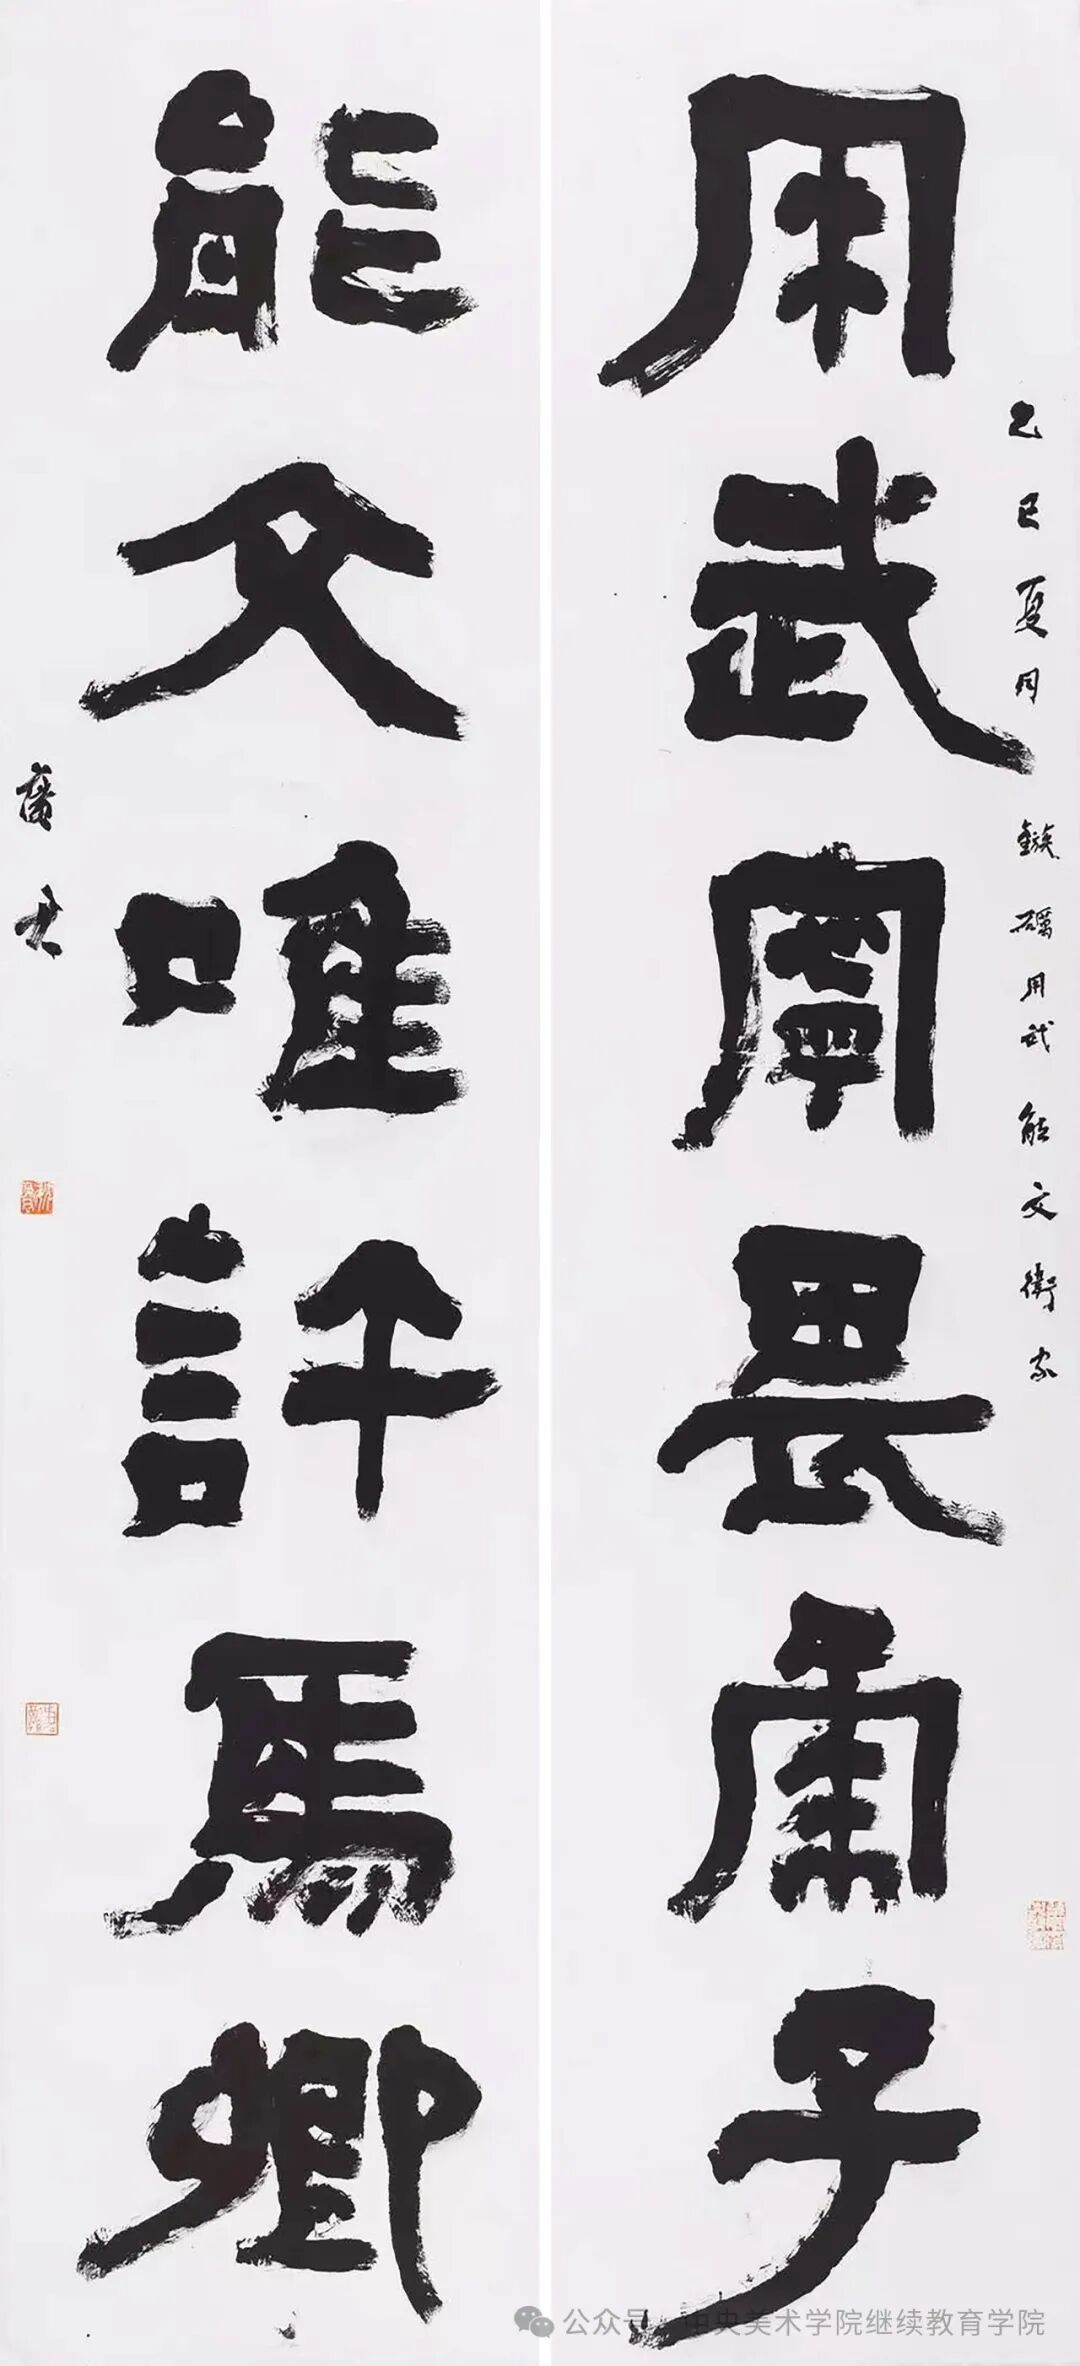 用武寧畏肅子
乙巳夏月 鏃礪用武 能文衛家
能文唯許馬卿
公众号 中央美术学院继续教育学院